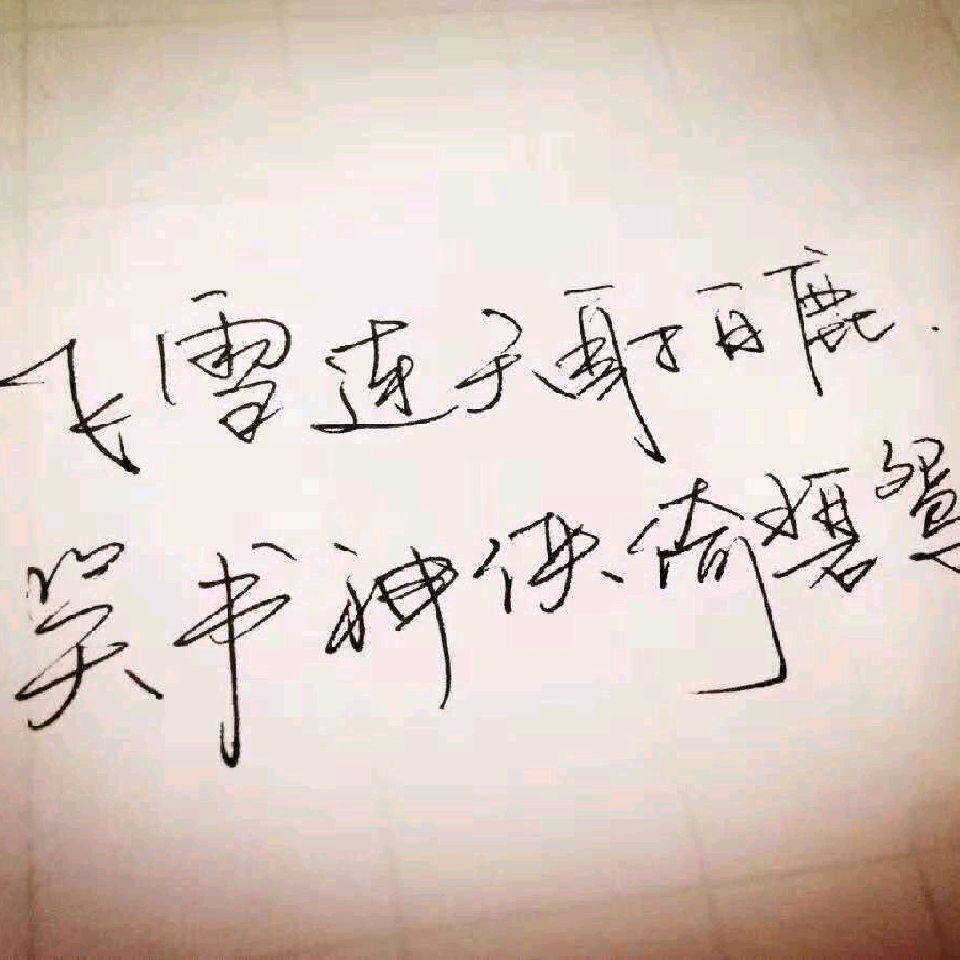 飞雪连天射白鹿.
笑书神侠倚碧鸳